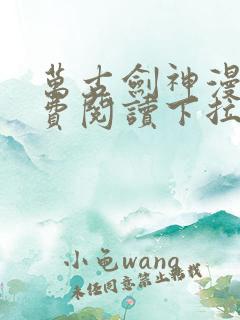 萬古劍神漫
費閱讀下拉
小色wang
未经同意禁止转载